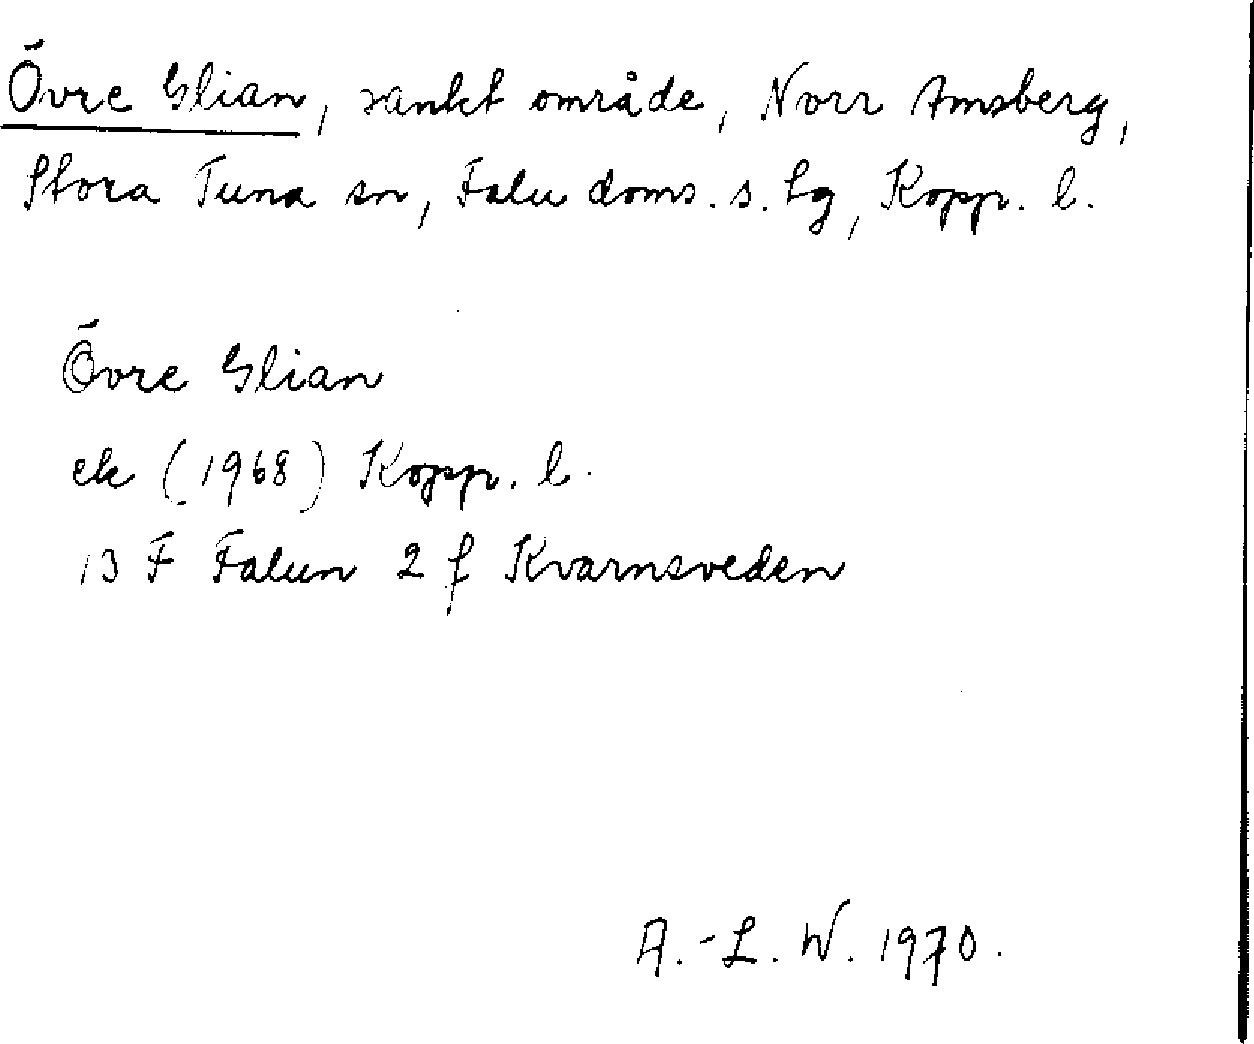 Övre Glian, sankt område, Norr Amsberg,
Stora Tuna sn, Falu doms. s. tg, Kopp. l.
Övre Glian
ek (1968) Kopp. l.
13 F Falun 2 f Kvarnsveden
A.-L. W. 1970.